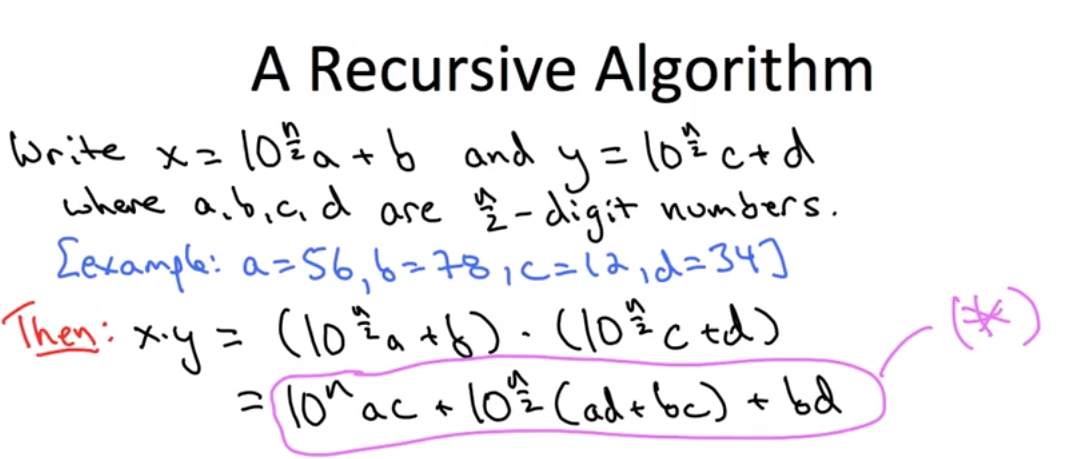 A Recursive Algorithm
Write x = 10^(n/2) a + b and y = 10^(n/2) c + d
where a, b, c, d are n/2 - digit numbers.
[example: a=56, b=78, c=12, d=34]
Then: x·y = (10^(n/2) a + b) · (10^(n/2) c + d) (*)
= 10^n ac + 10^(n/2) (ad + bc) + bd